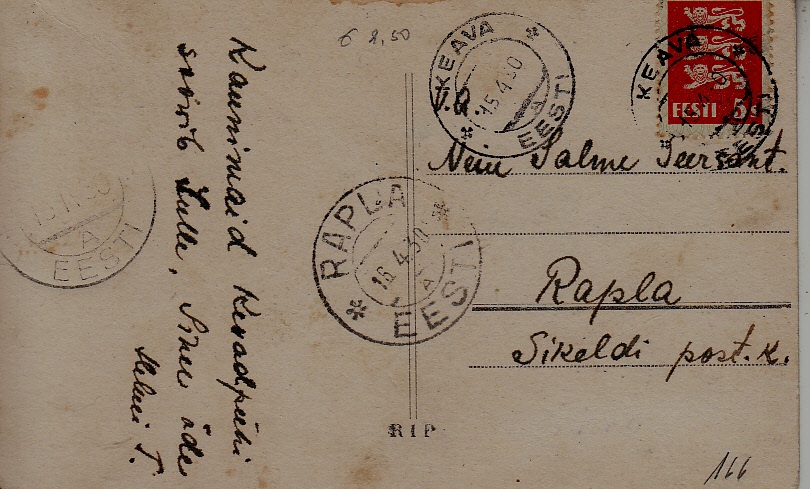 Kaunimaid Kevadpühi
soovib Sulle, Sinu õde
T.
€ 2,50
KEAVA
15.4.30
A
EESTI
KEAVA
EESTI
EESTI 5 S
Neiu Salme Seersant.
Rapla
Sikeldi post. k.
RAPLA
16.4.30
A
EESTI
A
EESTI
RIP
166